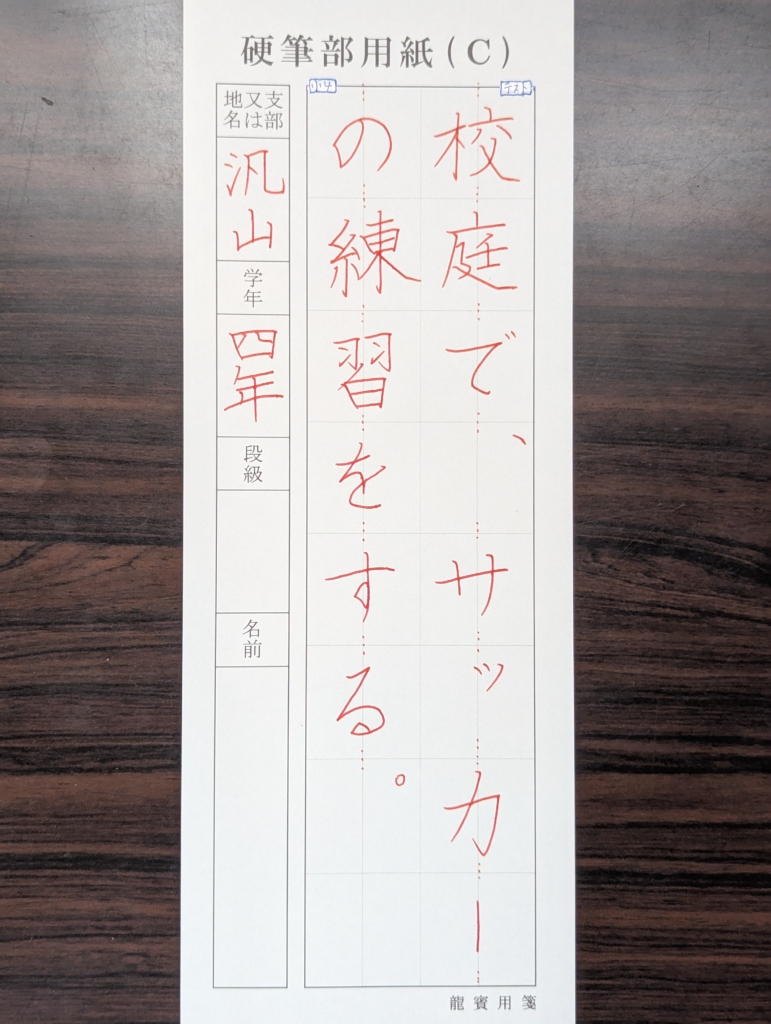 硬筆部用紙(C)
小4
テスト
校庭で、サッカー
の練習をする。
支部又は地名
汎山
学年
四年
段級
名前
龍賓用箋